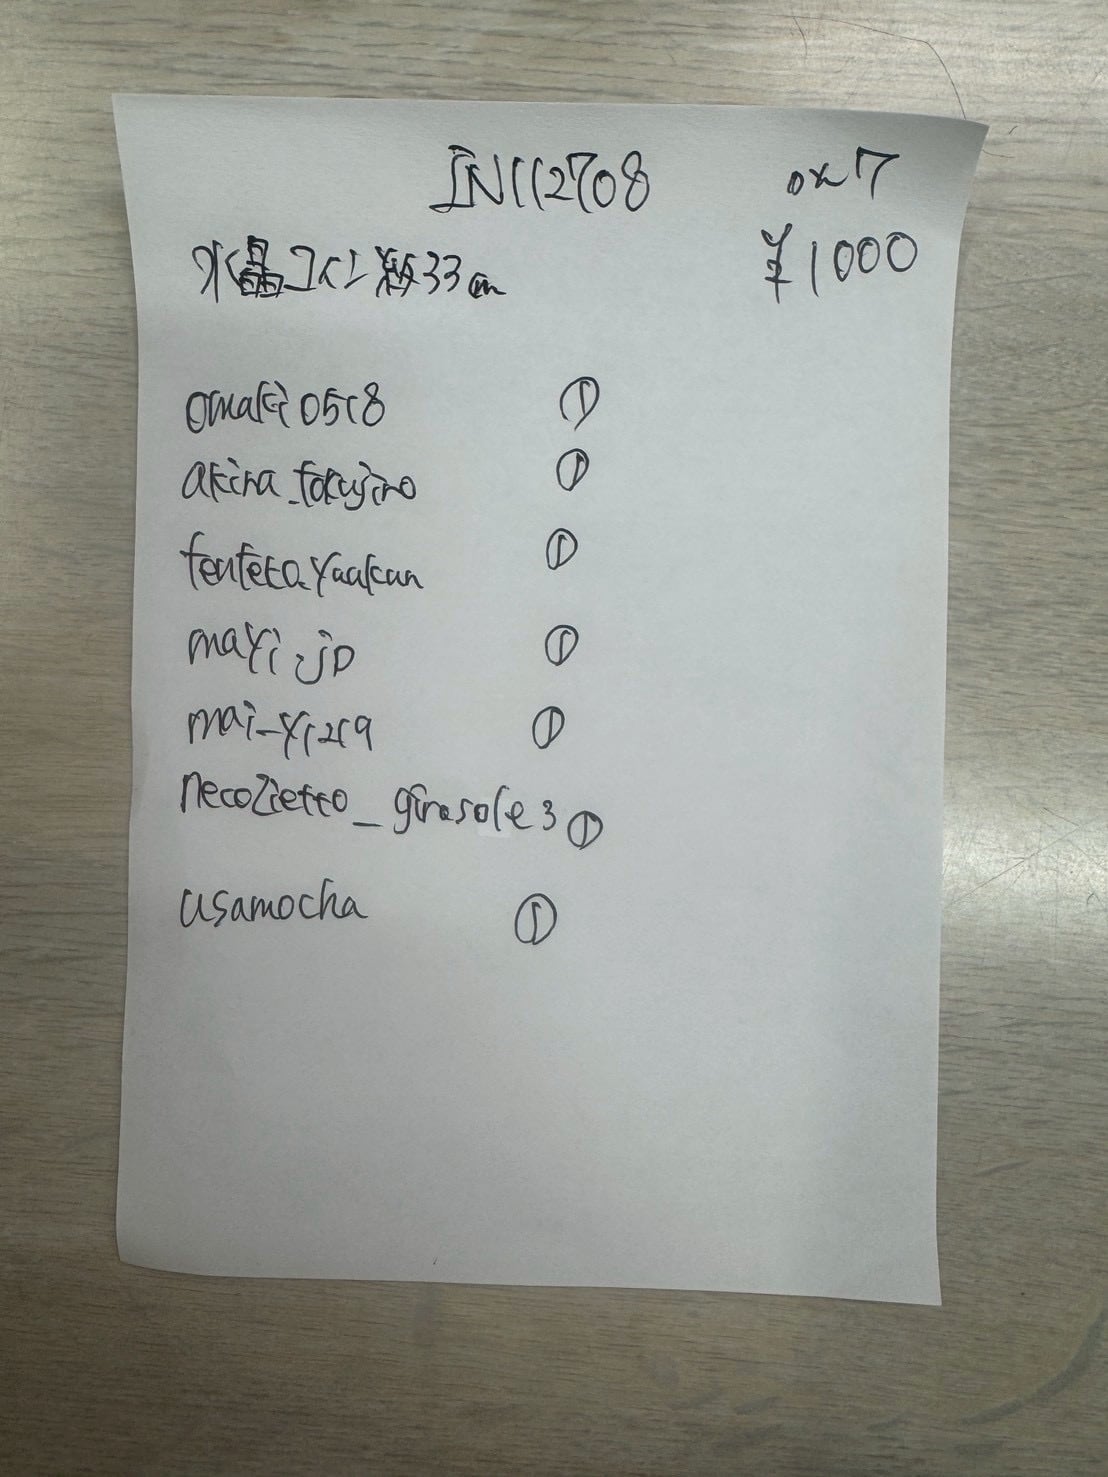 IN112708 ox7
水晶コイン 約33cm ¥1000
omaki0518 ①
akira_tokujiro ①
tenteta.yaakun ①
mayi.jp ①
mai_y1219 ①
necozietto_girasole3 ①
usamocha ①